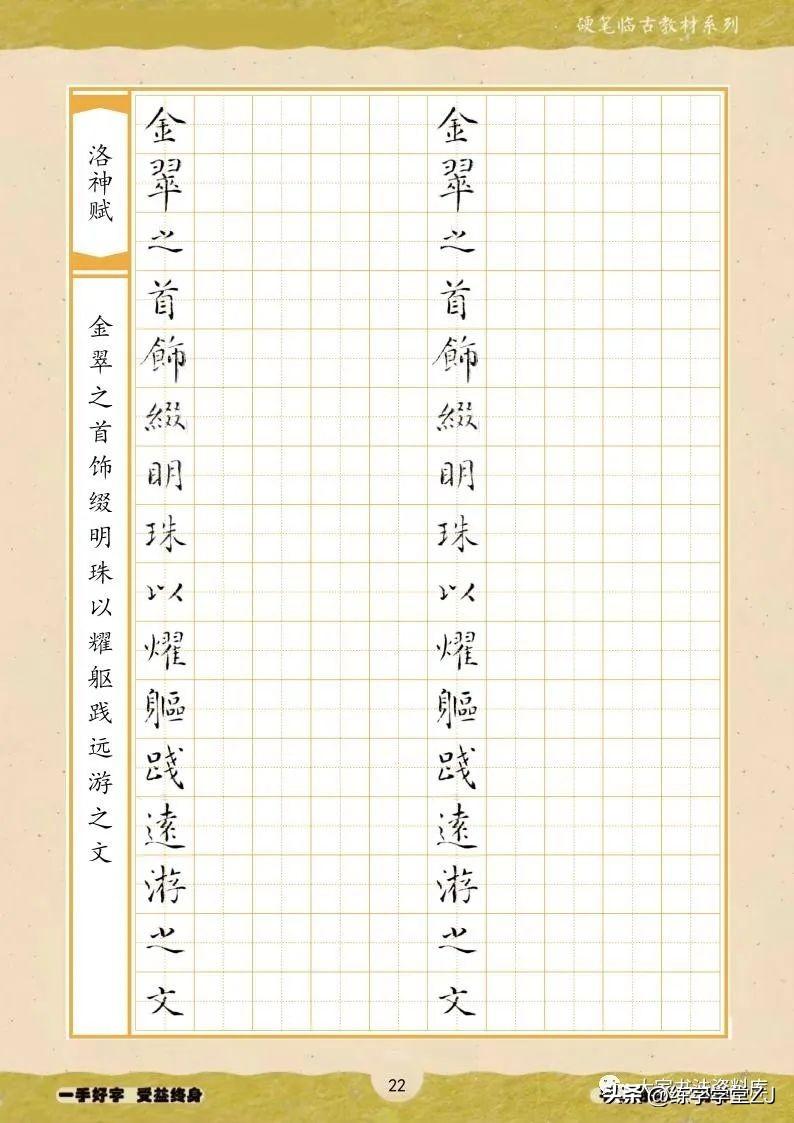 硬笔临古教材系列
洛神赋
金翠之首饰缀明珠以耀躯践远游之文
金翠之首飾綴明珠以耀軀踐遠游之文
金翠之首飾綴明珠以耀軀踐遠游之文
一手好字 受益终身
22
头条 @练字学堂ZJ